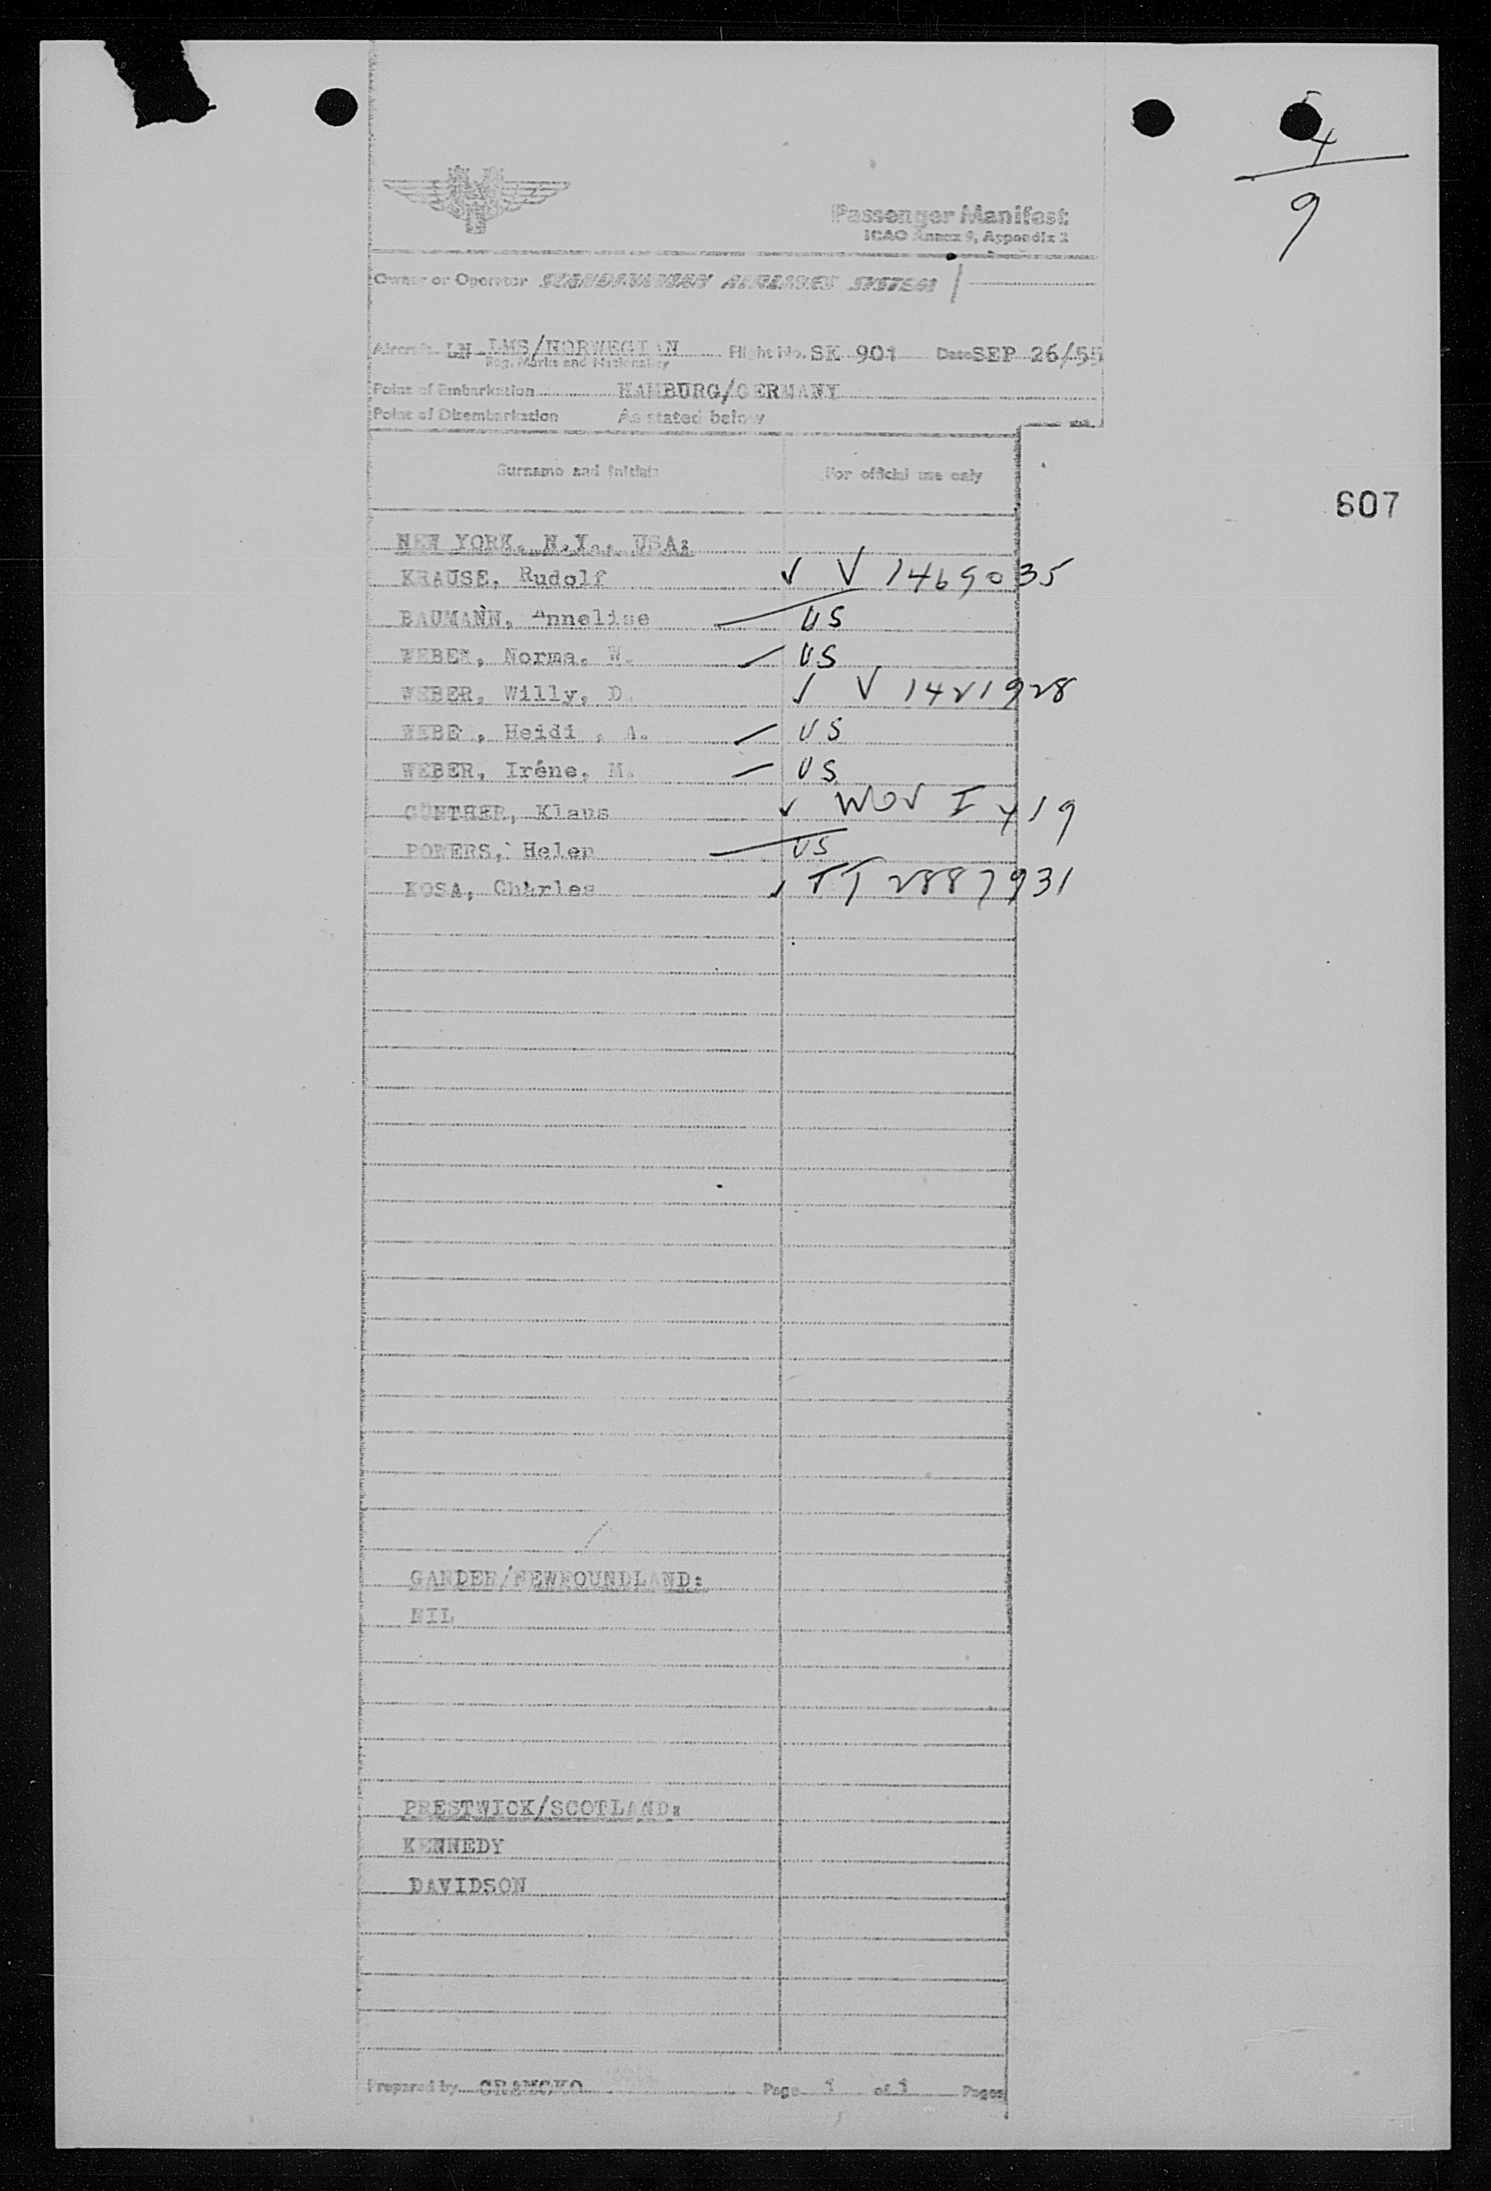 4
9
Passenger Manifest
ICAO Annex 9, Appendix 2
Owner or Operator SCANDINAVIAN AIRLINES SYSTEM
Aircraft LN-LMS/NORWEGIAN Flight No. SK 901 Date SEP 26/55
Reg. Marks and Nationality
Point of Embarkation HAMBURG/GERMANY
Point of Disembarkation As stated below
Surname and Initials For official use only
607
NEW YORK, N.Y., USA:
KRAUSE, Rudolf ✓ V 1469035
BAUMANN, Annelise US
WEBER, Norma. W. US
WEBER, Willy, D. ✓ V 1421928
WEBE , Heidi , A. US
WEBER, Iréne, M. US
GÜNTHER, Klaus ✓ I 419
POWERS, Helen US
KOSA, Charles ✓ 2887931
GANDER/NEWFOUNDLAND:
NIL
PRESTWICK/SCOTLAND:
KENNEDY
DAVIDSON
Prepared by Page 1 of 1 Pages